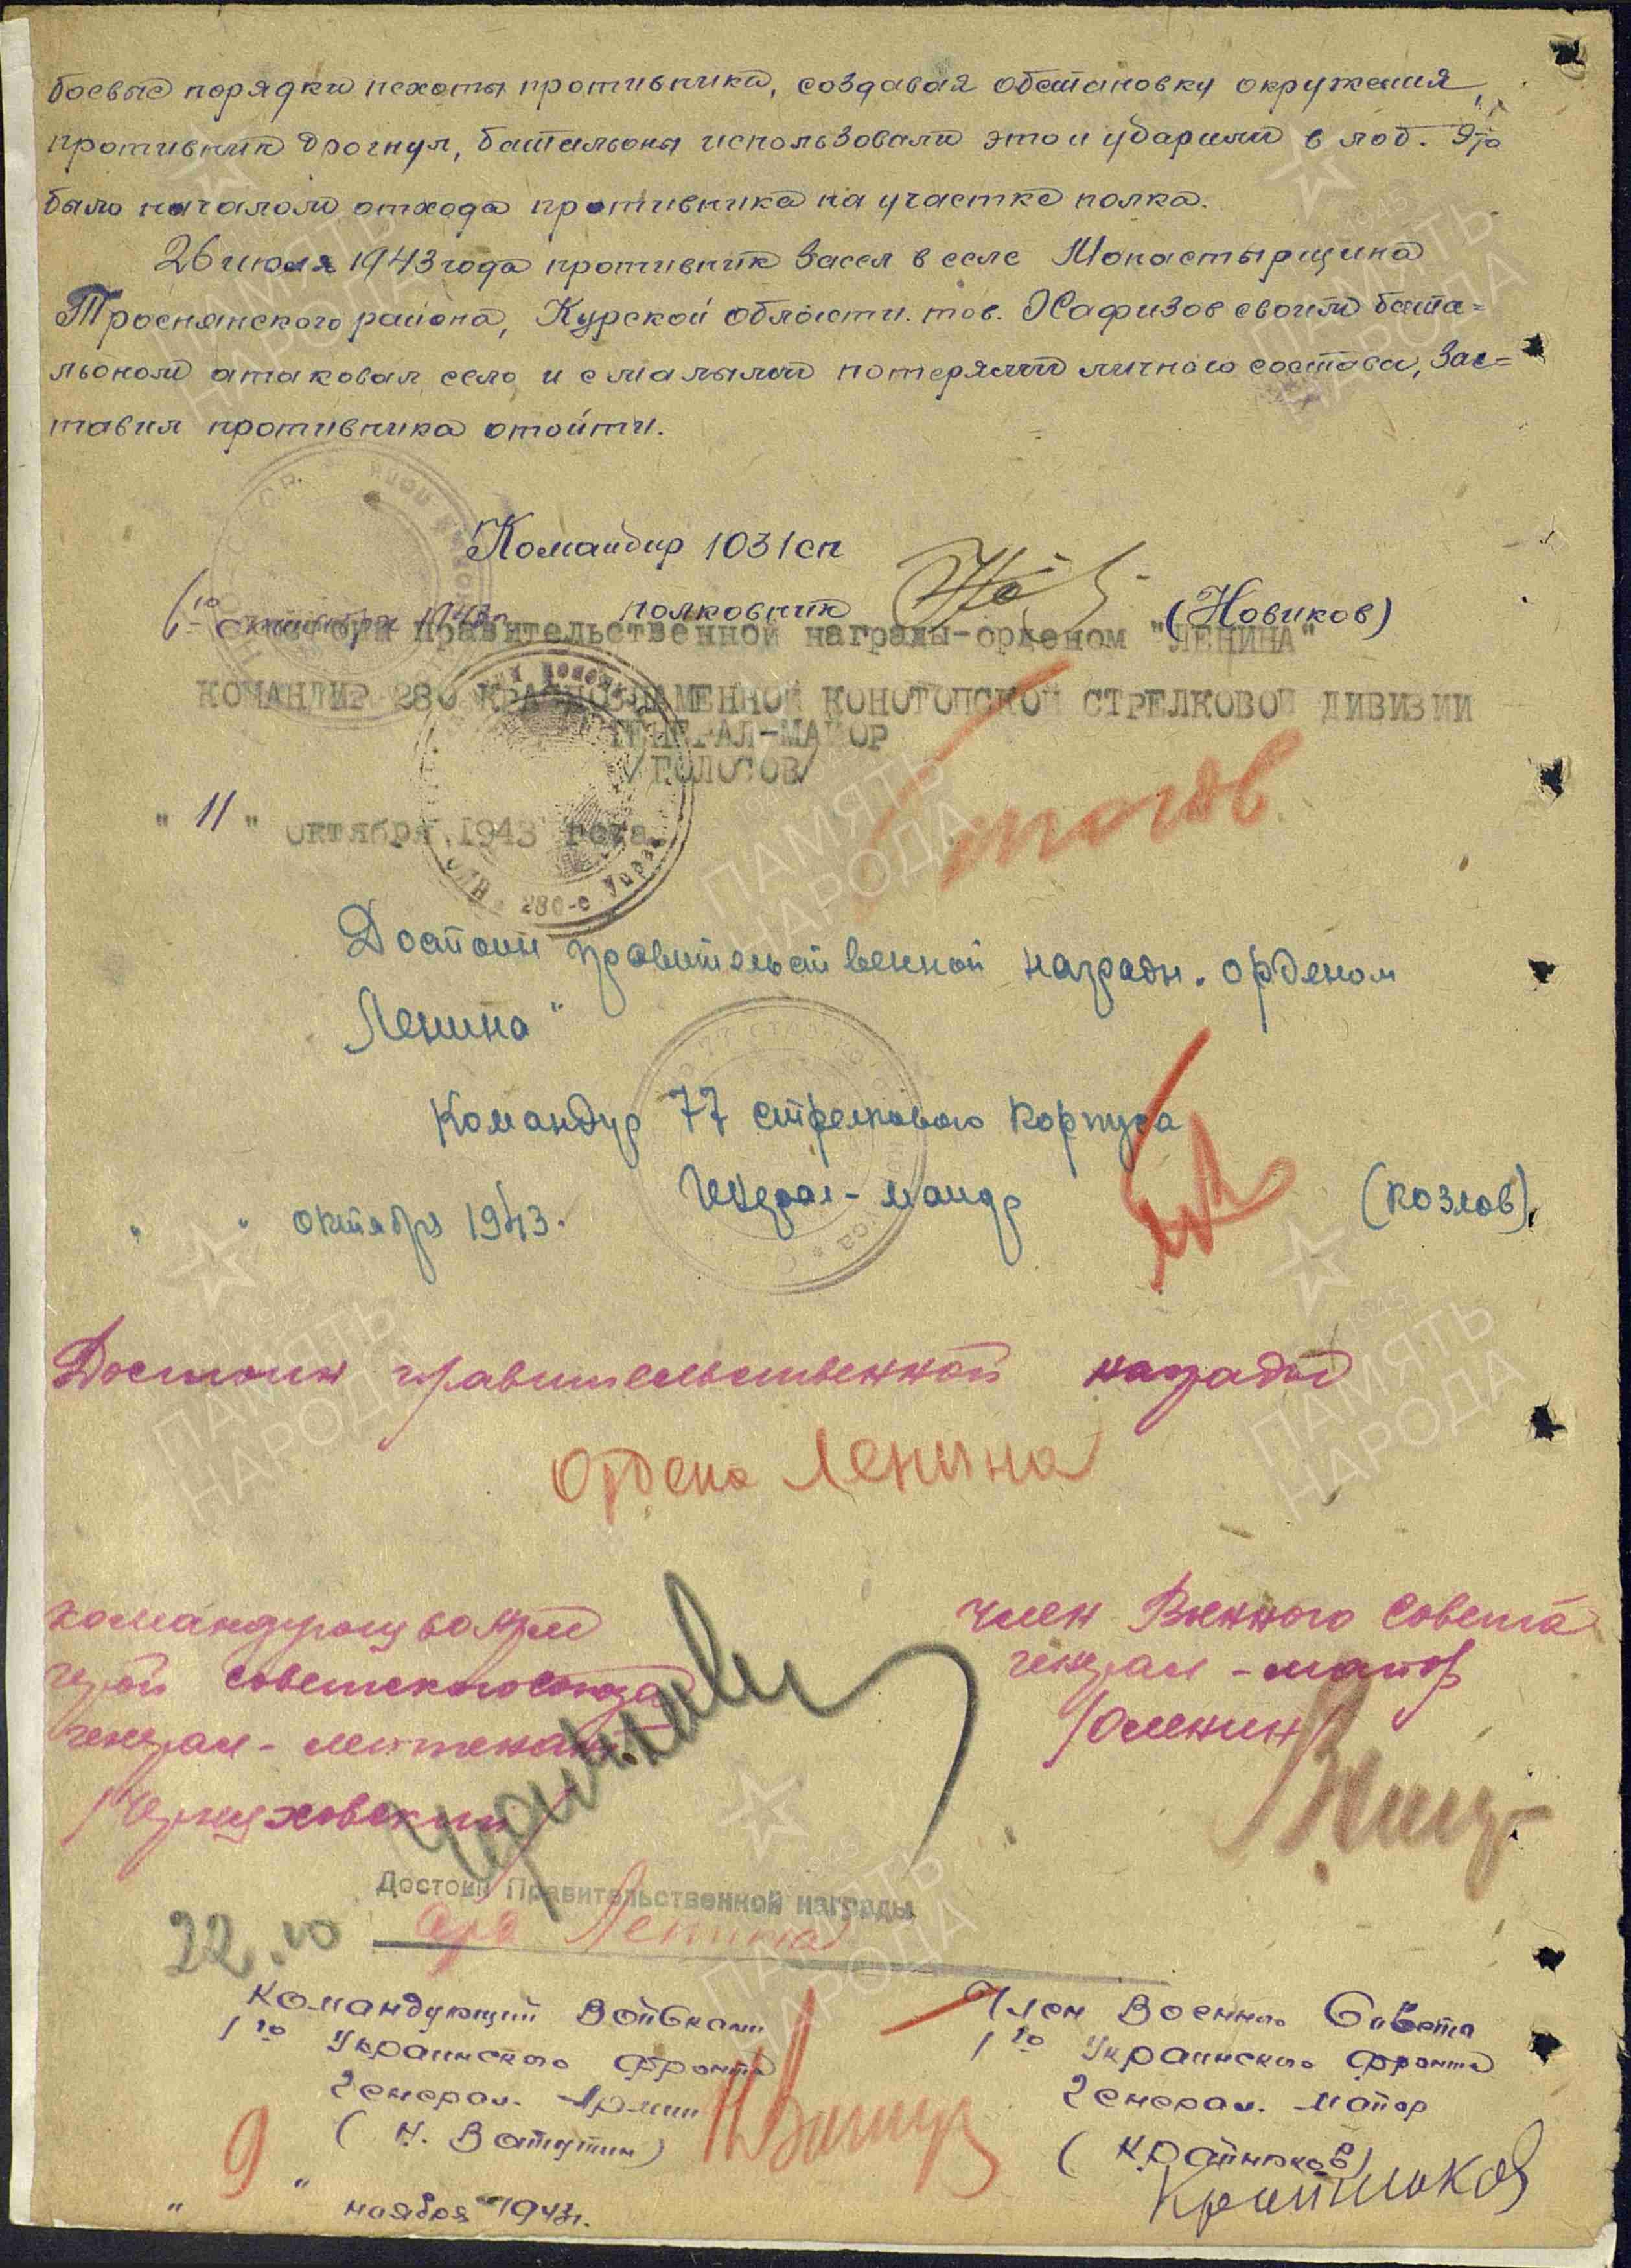 боевые порядки пехоты противника, создавая обстановку окружения,
противник дрогнул, батальоны использовали это и ударили в лоб. Это
было началом отхода противника на участке полка.
26 июля 1943 года противник засел в селе Монастырщина
Троснянского района, Курской области. тов. Хафизов своим бата=
льоном атаковал село и с малыми потерями личного состава, зас=
тавил противника отойти.
Командир 1031 сп
полковник (Новиков)
октября 1943 г.
правительственной награды-орденом "ЛЕНИНА"
КОМАНДИР 280 КРАСНОЗНАМЕННОЙ КОНОТОПСКОЙ СТРЕЛКОВОЙ ДИВИЗИИ
ГЕНЕРАЛ-МАЙОР
/ГОЛОСОВ/
" 11 " октября 1943 года.
Достоин правительственной наградн. орденом
Ленина"
Командир 77 стрелкового корпуса
Генерал-майор (Козлов)
" " октября 1943.
Достоин правительственной награды
Ордена Ленина
командующ войсками
герой советского союза
генерал-лейтенант
/Черняховский/
член Военного Совета
генерал-майор
/Оленин/
Достоин Правительственной награды
22.10
орд Ленина
Командующий Войсками
1го Украинского фронта
Генерал Армии
(Н. Ватутин)
Член Военного Совета
1го Украинского фронта
Генерал. Майор
(Крайнюков)
Крайнюков
" 9 " ноября 1943г.
ПАМЯТЬ
НАРОДА